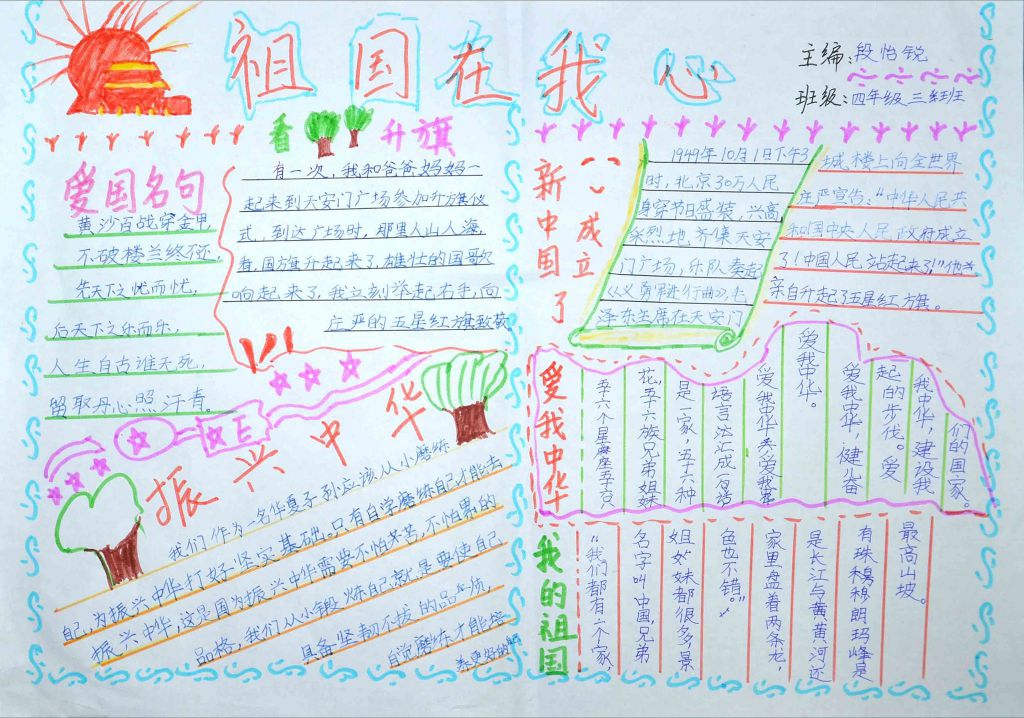 祖国在我心
主编：段怡锐
班级：四年级三班
看升旗
爱国名句
黄沙百战穿金甲
不破楼兰终不还，
先天下之忧而忧，
后天下之乐而乐，
人生自古谁无死，
留取丹心照汗青。
有一次，我和爸爸妈妈一
起来到天安门广场参加升旗仪
式，到达广场时，那里人山人海，
看，国旗升起来了，雄壮的国歌
响起来了，我立刻举起右手，向
庄严的五星红旗致敬
新中国成立了
1949年10月1日下午3
时，北京30万人民
身穿节日盛装，兴高
采烈地齐集天安
门广场，乐队奏起
《义勇军进行曲》，毛
泽东主席在天安门
城楼上向全世界
庄严宣告：“中华人民共
和国中央人民政府成立
了！中国人民站起来了！”他并
亲自升起了五星红旗。
振兴中华
我们作为一名华夏子孙应该从小磨练
自己，为振兴中华打好坚实基础。只有自学磨练自己才能去
振兴中华，这是因为振兴中华需要不怕辛苦，不怕累的
品格，我们从小锻炼自己就是要使自己
具备坚韧不拔的品质，
自觉磨练才能培
养更好的
爱我中华
五十六个星座五十六
花，五十六族兄弟姐妹
是一家，五十六种
语言汇成一句话
爱我中华
爱我中华。
爱我中华，健奋
起的步伐。爱
我中华，建设我
们的国家。
我的祖国
“我们都有一个家，
名字叫中国，兄弟
姐妹都很多，景
色也不错。”
家里盘着两条龙，
是长江与黄河还
有珠穆朗玛峰是
最高山坡。